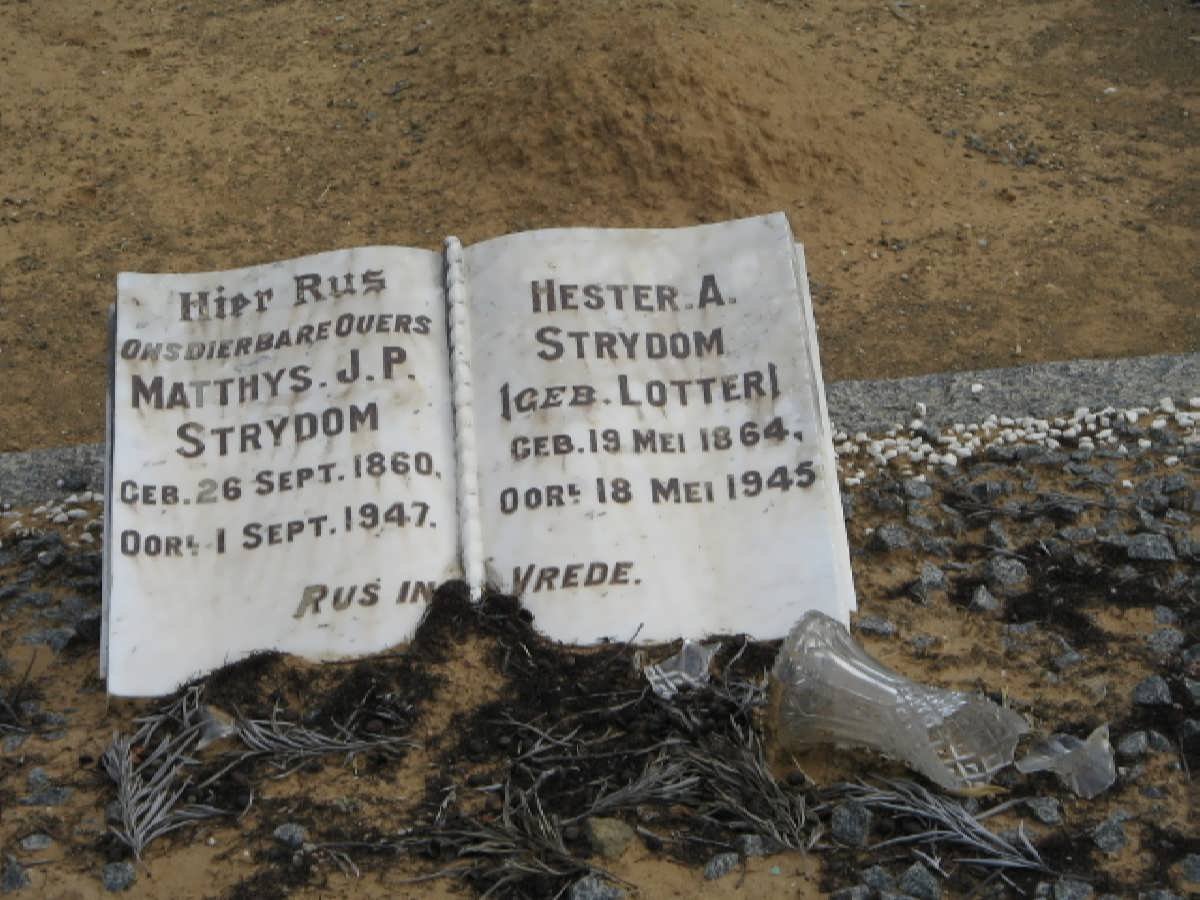 Hier Rus
ONS DIERBARE OUERS
MATTHYS. J. P.
STRYDOM
GEB. 26 SEPT. 1860.
OORL. 1 SEPT. 1947.
HESTER. A.
STRYDOM
(GEB. LOTTER)
GEB. 19 MEI 1864.
OORL. 18 MEI 1945
RUS IN VREDE.